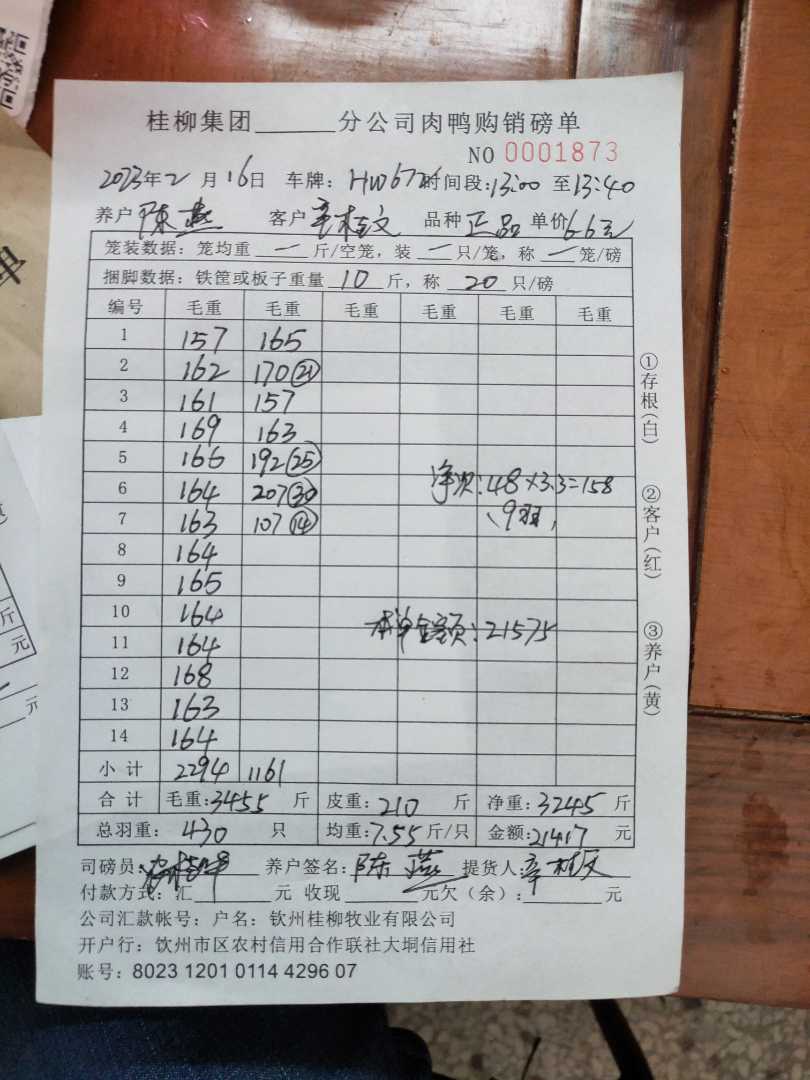 桂柳集团______分公司肉鸭购销磅单
NO 0001873
2023年2月16日 车牌: HW6726 时间段:13:00 至13:40
养户 陈燕 客户 辛桂文 品种 正品 单价6.6元
笼装数据: 笼均重 一 斤/空笼, 装 一 只/笼, 称 一 笼/磅
捆脚数据: 铁筐或板子重量 10 斤, 称 20 只/磅
编号 毛重 毛重 毛重 毛重 毛重 毛重
1 157 165
2 162 170㉑
3 161 157
4 169 163
5 166 192㉕
6 164 207㉚
7 163 107⑭
8 164
9 165
10 164
11 164
12 168
13 163
14 164
净次:48×3.3=158
、9羽,
本单金额:21575
小计 2294 1161
合计 毛重:3455 斤 皮重: 210 斤 净重: 3245 斤
总羽重: 430 只 均重:7.55斤/只 金额:21417 元
司磅员: 养户签名: 陈燕 提货人: 辛桂文
付款方式: 汇______元 收现______元欠(余):______元
公司汇款帐号: 户名: 钦州桂柳牧业有限公司
开户行: 钦州市区农村信用合作联社大垌信用社
账号: 8023 1201 0114 4296 07
①存根(白)
②客户(红)
③养户(黄)
斤
元
元